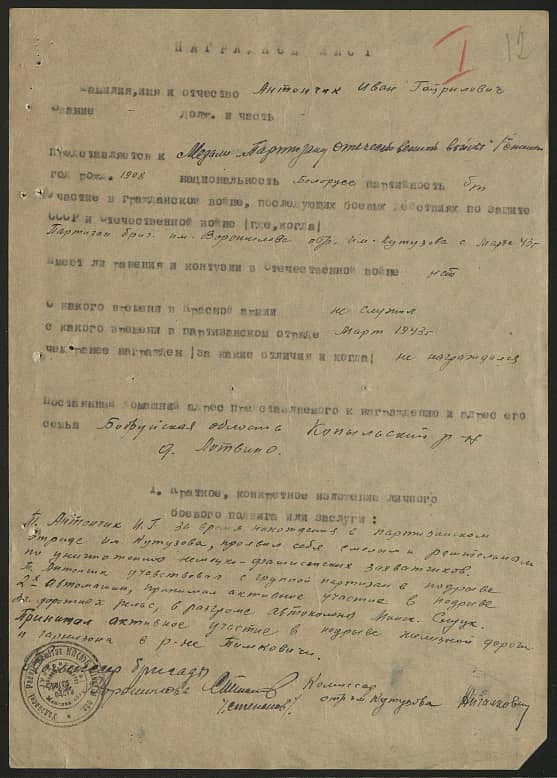 I 12
НАГРАДНОЙ ЛИСТ
Фамилия, имя и отчество Антончик Иван Гаврилович
Звание Долж. и часть
Представляется к Медали "Партизану отечественной войны" I степени
год рожд. 1908 национальность Белорусс партийность бп
Участие в гражданской войне, последующих боевых действиях по защите
СССР и отечественной войне |где, когда|
Партизан бриг. им. Ворошилова отр. им. Кутузова с марта 43г
Имеет ли ранения и контузии в отечественной войне нет
С какого времени в Красной армии не служил
С какого времени в партизанском отряде Март 1943г
чем ранее награжден |за какие отличия и когда| не награждался
Постоянный домашний адрес представляемого к награждению и адрес его
семьи Бобруйская область Копыльский р-н
д. Лотвино.
1. Краткое, конкретное изложение личного
боевого подвига или заслуги:
Т. Антончик И.Г за время нахождения в партизанском
отряде им Кутузова, проявил себя смелым и решительным
по уничтожению немецко-фашистских захватчиков.
Т. Антончик участвовал с группой партизан в подрыве
2х автомашин, принимал активное участие в подрыве
жел дорожных рельс, в разгроме автоколонны Слуцк.
Принимал активное участие в подрыве железной дороги
и гарнизона в р-не Тимковичи.
Командир бригады
Ворошилова /Степанов/. Комиссар
отр. им. Кутузова